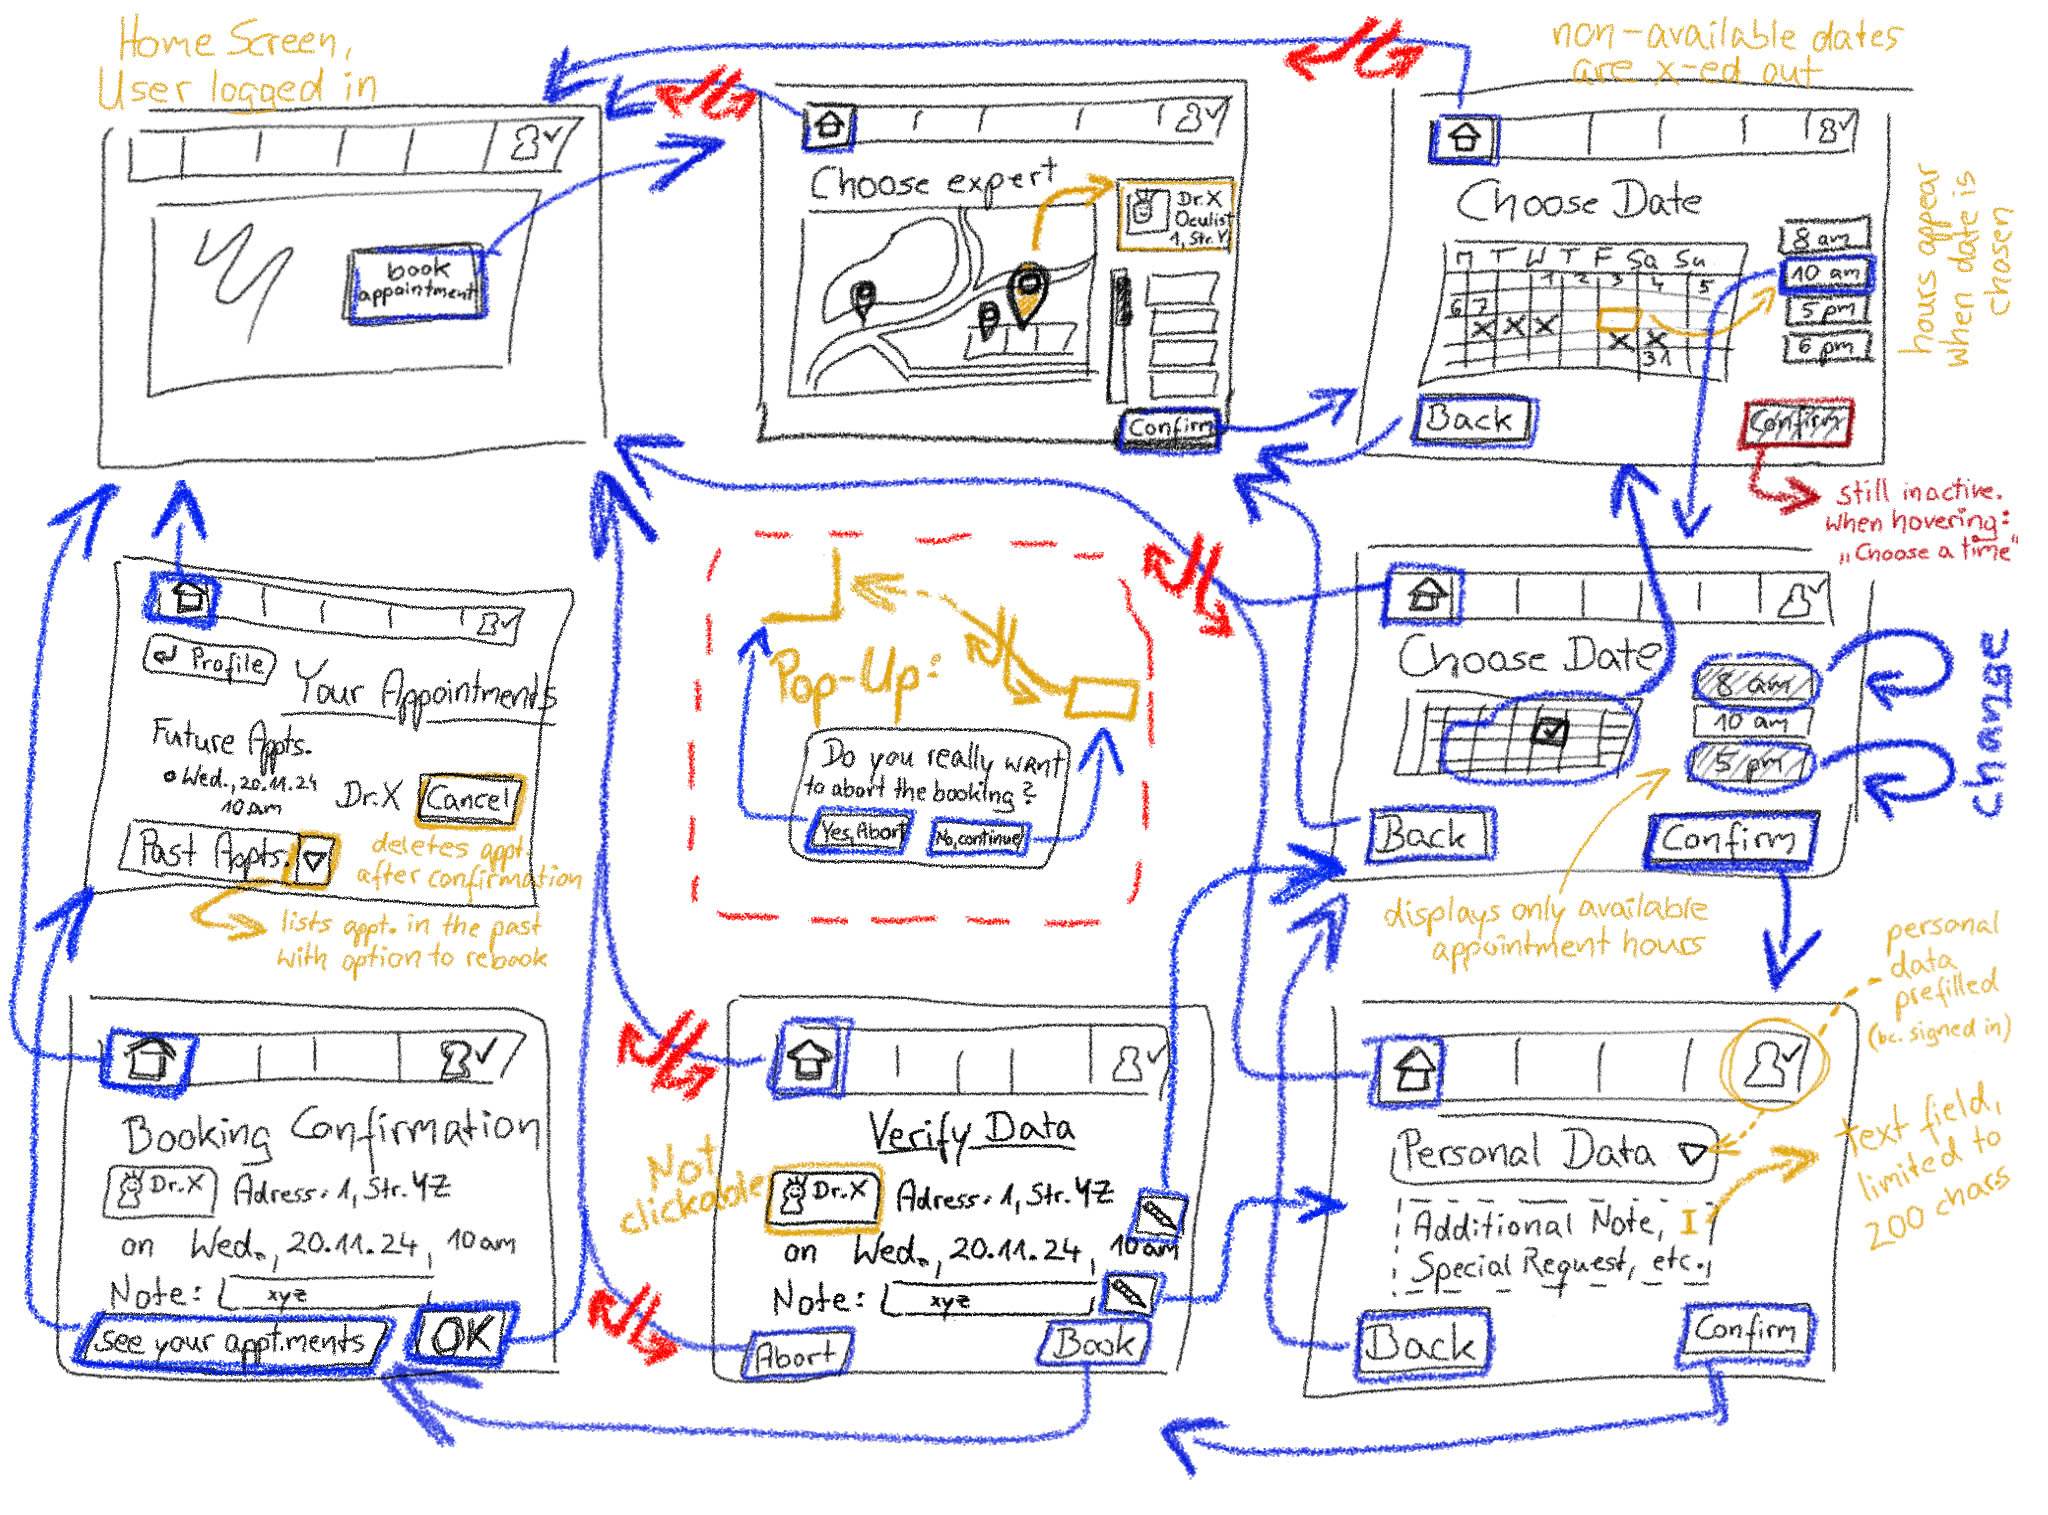 Home Screen,
User logged in
book
appointment
Choose expert
Dr.X
Oculist
1, Str. Y
Confirm
non-available dates
are x-ed out
Choose Date
M T W T F Sa Su
1 2 3 4 5
6 7
X X X X X
31
8 am
10 am
5 pm
6 pm
Back
Confirm
hours appear
when date is
chosen
still inactive.
when hovering:
„Choose a time"
Profile
Your Appointments
Future Appts.
Wed., 20.11.24
10am
Dr.X
Cancel
Past Appts.
deletes appt.
after confirmation
lists appt. in the past
with option to rebook
Pop-Up:
Do you really want
to abort the booking?
Yes, Abort
No, continue
Choose Date
8 am
10 am
5 pm
change
Back
Confirm
displays only available
appointment hours
Booking Confirmation
Dr.X
Adress: 1, Str. YZ
on Wed., 20.11.24, 10am
Note: xyz
see your apptments
OK
Verify Data
Not
clickable
Dr.X
Adress: 1, Str. YZ
on Wed., 20.11.24, 10am
Note: xyz
Abort
Book
personal
data
prefilled
(bc. signed in)
Personal Data
Additional Note,
Special Request, etc.
I
Text field,
limited to
200 chars
Back
Confirm